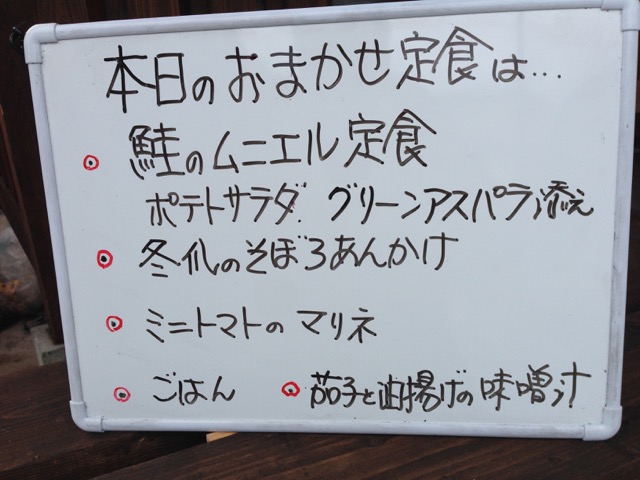 本日のおまかせ定食は...
鮭のムニエル定食
ポテトサラダ グリーンアスパラ添え
冬瓜のそぼろあんかけ
ミニトマトのマリネ
ごはん 茄子と油揚げの味噌汁